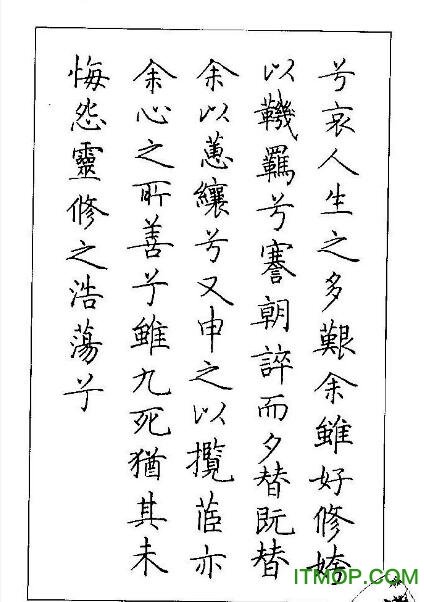 兮哀人生之多艱余雖好修姱
以鞿羈兮謇朝誶而夕替既替
余以蕙纕兮又申之以攬茝亦
余心之所善兮雖九死猶其未
悔怨靈修之浩蕩兮
ITMOP.COM